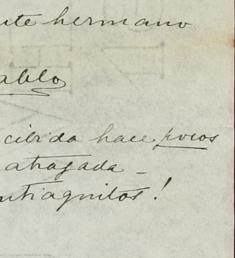 nte hermano
ablo
cibida hace pocos
atrazada _
ntiaguitos!